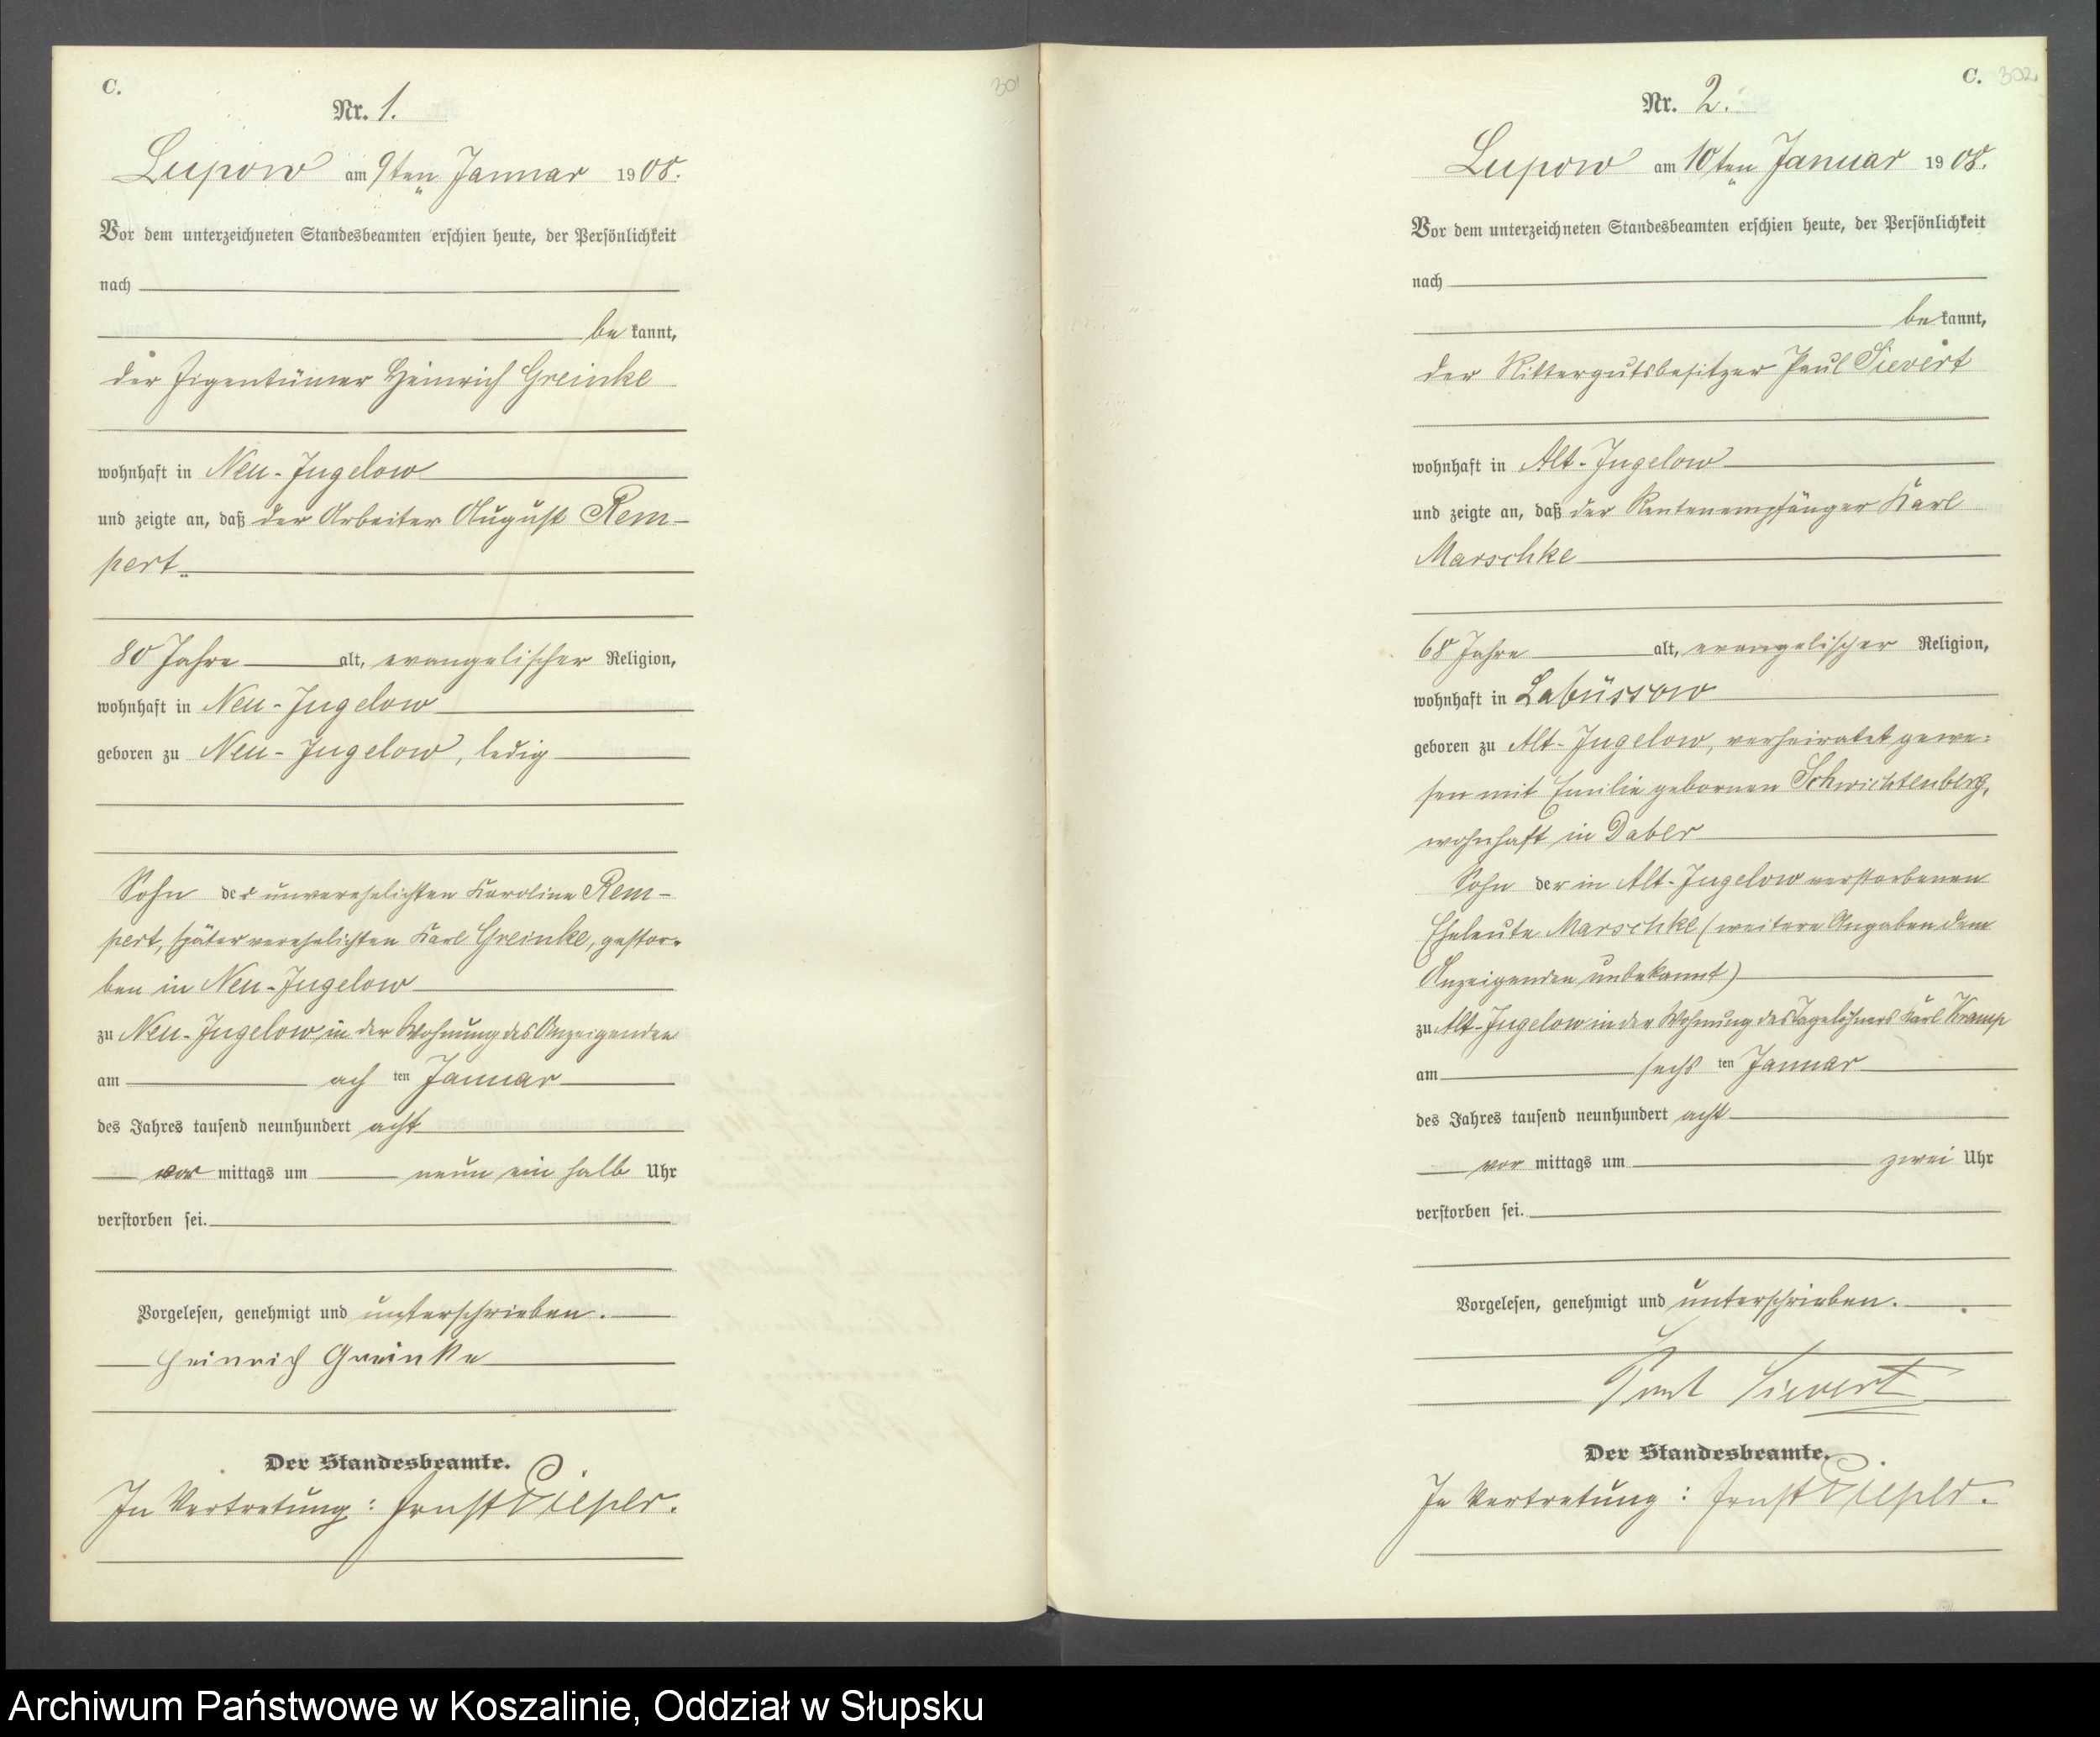 C.
301
Nr. 1.
Lupow am 9ten Januar 1908.
Vor dem unterzeichneten Standesbeamten erschien heute, der Persönlichkeit
nach
be kannt,
der Eigentümer Heinrich Greinke
wohnhaft in Neu-Jugelow
und zeigte an, daß der Arbeiter August Rem-
pert
80 Jahre alt, evangelischer Religion,
wohnhaft in Neu-Jugelow
geboren zu Neu-Jugelow, ledig
Sohn der unverehelichten Karoline Rem-
pert, später verehelichten Karl Greinke, gestor-
ben in Neu-Jugelow
zu Neu-Jugelow, in der Wohnung des Anzeigenden
am ach ten Januar
des Jahres tausend neunhundert acht
vor mittags um neun ein halb Uhr
verstorben sei.
Vorgelesen, genehmigt und unterschrieben.
Heinrich Greinke
Der Standesbeamte.
In Vertretung: Ernst Pieper.
C. 302
Nr. 2.
Lupow am 10ten Januar 1908.
Vor dem unterzeichneten Standesbeamten erschien heute, der Persönlichkeit
nach
be kannt,
der Rittergutsbesitzer Paul Sievert
wohnhaft in Alt-Jugelow
und zeigte an, daß der Rentenempfänger Karl
Marschke
68 Jahre alt, evangelischer Religion,
wohnhaft in Labüssow
geboren zu Alt-Jugelow, verheiratet gewe-
sen mit Emilie gebornen Schwichtenberg,
wohnhaft in Daber
Sohn der in Alt-Jugelow verstorbenen
Eheleute Marschke (weitere Angaben dem
Anzeigenden unbekannt)
zu Alt-Jugelow in der Wohnung des Tagelöhners Karl Kramp
am sechs ten Januar
des Jahres tausend neunhundert acht
vor mittags um zwei Uhr
verstorben sei.
Vorgelesen, genehmigt und unterschrieben.
Paul Sievert
Der Standesbeamte.
In Vertretung: Ernst Pieper.
Archiwum Państwowe w Koszalinie, Oddział w Słupsku